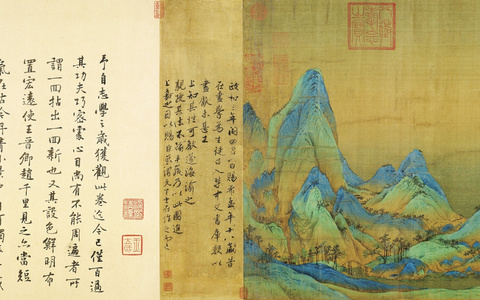 政和三年閏四月一日賜希孟年十八歲昔
在畫學為生徒召入禁中文書庫數以
畫獻未甚工
上知其性可教遂誨諭之
親授其法不踰半歲乃以此圖進
上嘉之因以賜臣京謂天下士在作之而已
予自志學之歲獲觀此卷迄今已僅百過
其功夫巧密處心目尚有不能周遍者所
謂一回拈出一回新也又其設色鮮明布
置宏遠使王晉卿趙千里見之亦當短